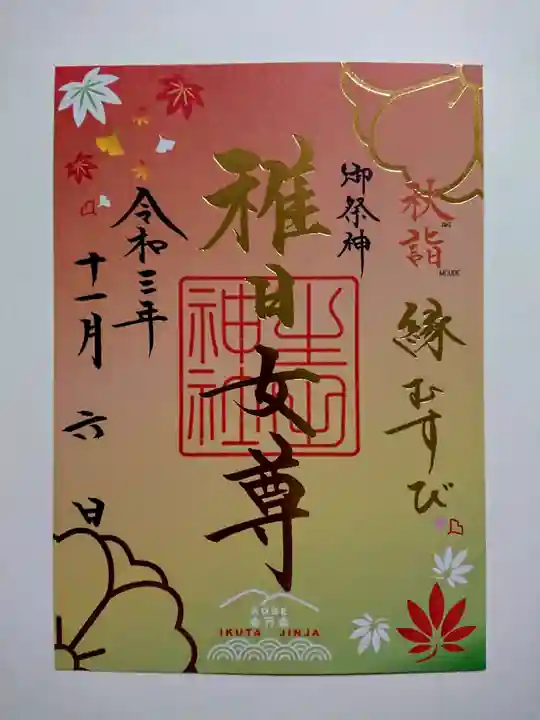 秋詣
縁むすび
御祭神
稚日女尊
生田
神社
令和三年
十一月 六 日
KOBE
IKUTA JINJA